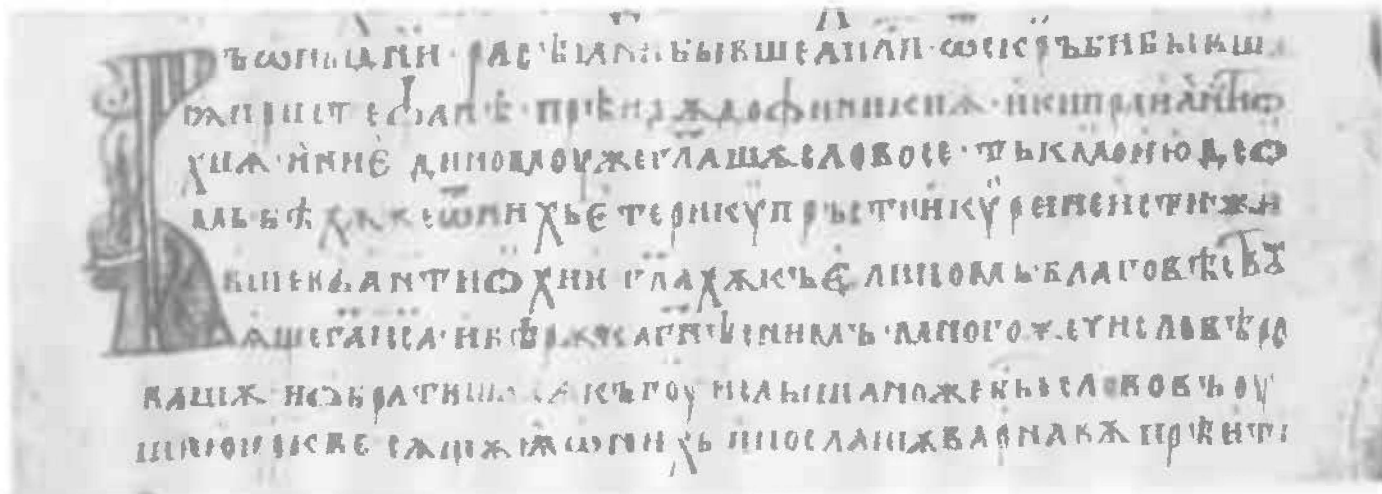 Ъ ѡны дн҃и · расѣꙗни бывше ап҃ли · ѡ скръби бывш
ѫи при стефанѣ · прѣидѫ до финикиѫ · и кипра и антиѡ
хиѫ · и ни єдиномоу же гл҃ашѫ слово се · тъкмо июдеѡ
мь бѣхѫ же ѿ нихь єтери кѵпръсти и кѵренеисти иже
вшеи въ антиѡхии гл҃ахѫ къ єлиномь благовѣствꙋ
ѫще г҃а и҃са · и бѣ рѫкa гн҃ѣ с нимъ · мъного же число вѣро
вашѫ · и ѡбратишѫ сѧ къ г҃оу и слышано же бы слово въ оу
шию цр҃кве сѫщѫѧ ѿ нихь и послашѫ варнавѫ прѣити